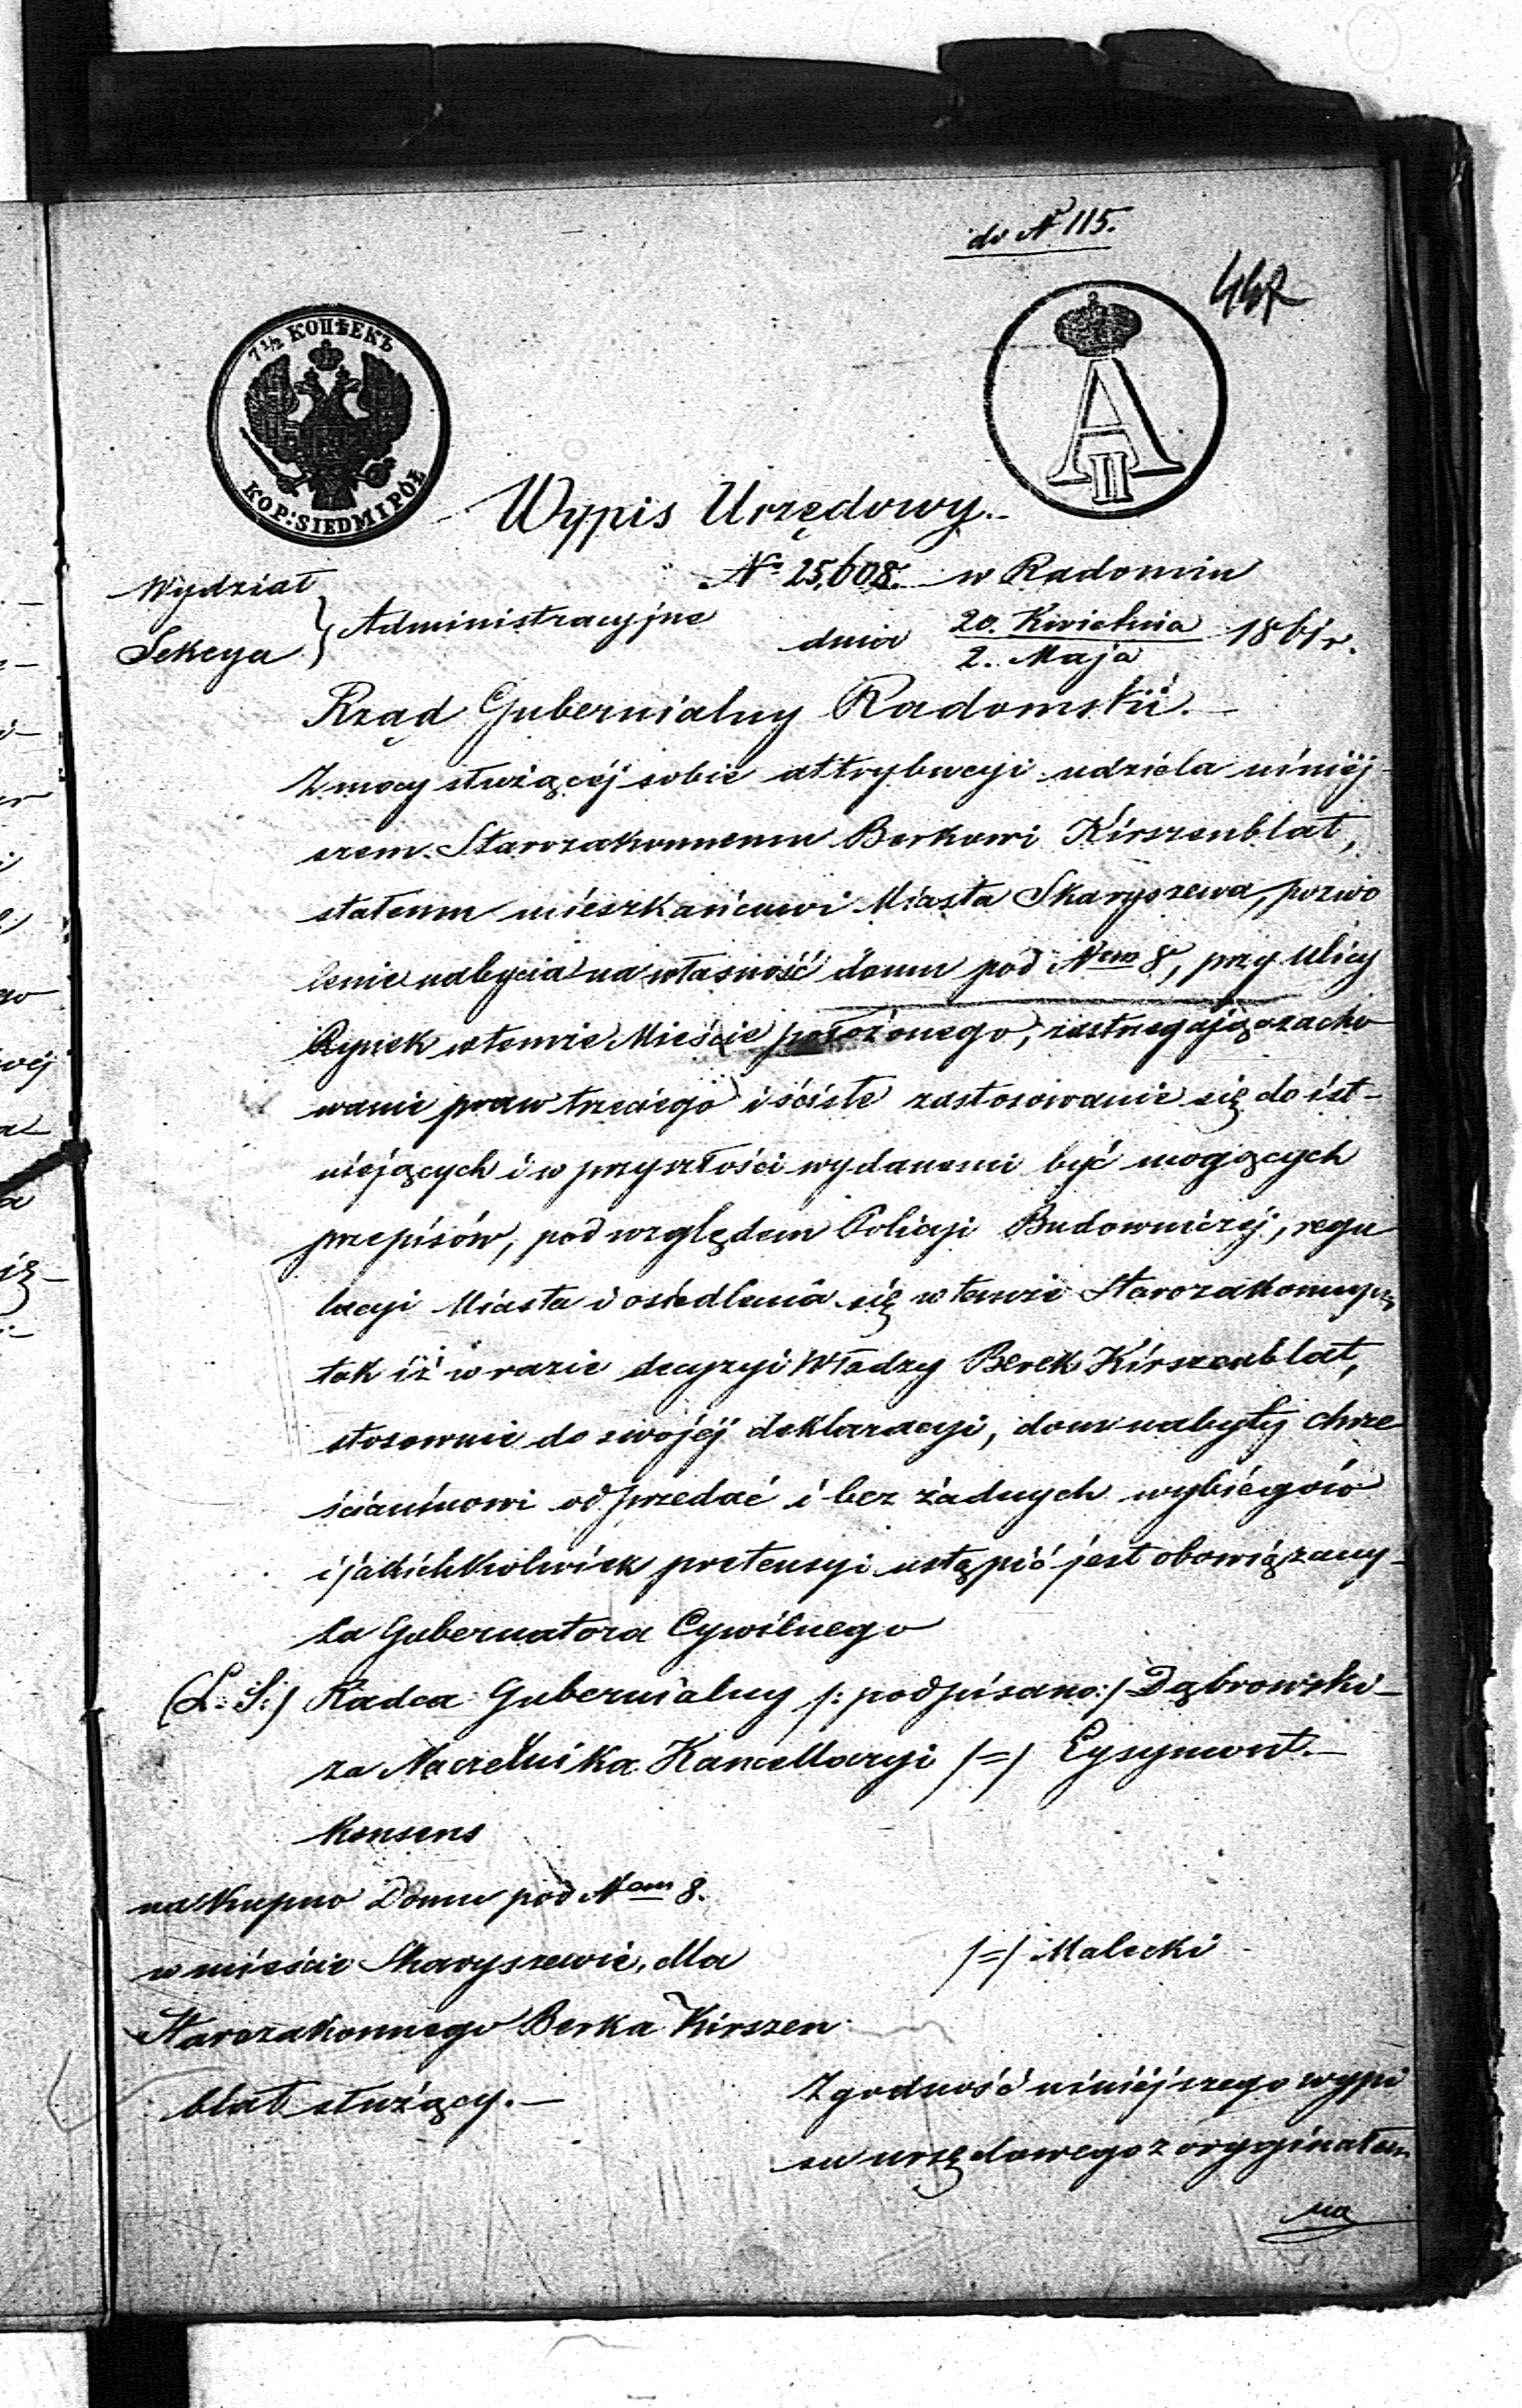 do № 115.
447
7 1/2 КОПѢЕКЪ
KOP: SIEDM I PÓŁ
A II
Wypis Urzędowy.
Wydział
Sekcya } Administracyjne
№ 25,608. w Radomiu
dnia 20. Kwietnia / 2. Maja 1861 r.
Rząd Gubernialny Radomski.
Z mocy służącéj sobie attrybucyi udziela niniéj
szem Starozakonnemu Berkowi Kirszenblat,
stałemu mieszkańcowi Miasta Skaryszewa, pozwo
lenie nabycia na własność domu pod Nrem 8, przy Ulicy
Rynek w temże Mieście położonego, zastrzegając zacho
wanie praw trzeciego i ściste zastosowanie się do ist-
niejących i w przyszłości wydanemi być mogących
przepisów, pod względem Policyi Budowniczéj, regu
lacyi Miasta i osiedlenia się w temże Starozakonnych,
tak iż w razie decyzyi Władzy Berek Kirszenblat,
stosownie do swojéj deklaracyi, dom nabyty chrze
ścianinowi odprzedać i bez żadnych wybiegów
i jakichkolwiek pretensyi ustąpić jest obowiązany-
za Gubernatora Cywilnego
(L. S:) Radca Gubernialny /: podpisano:/ Dąbrowski-
za Naczelnika Kancellaryi /=/ Eysymont.-
Konsens
na Kupno Domu pod Nem 8.
w mieście Skaryszewie, dla
/=/ Malecki
Starozakonnego Berka Kirszen
blat służący.-
Zgodność niniéjszego wypi
su urzędowego z oryginałem